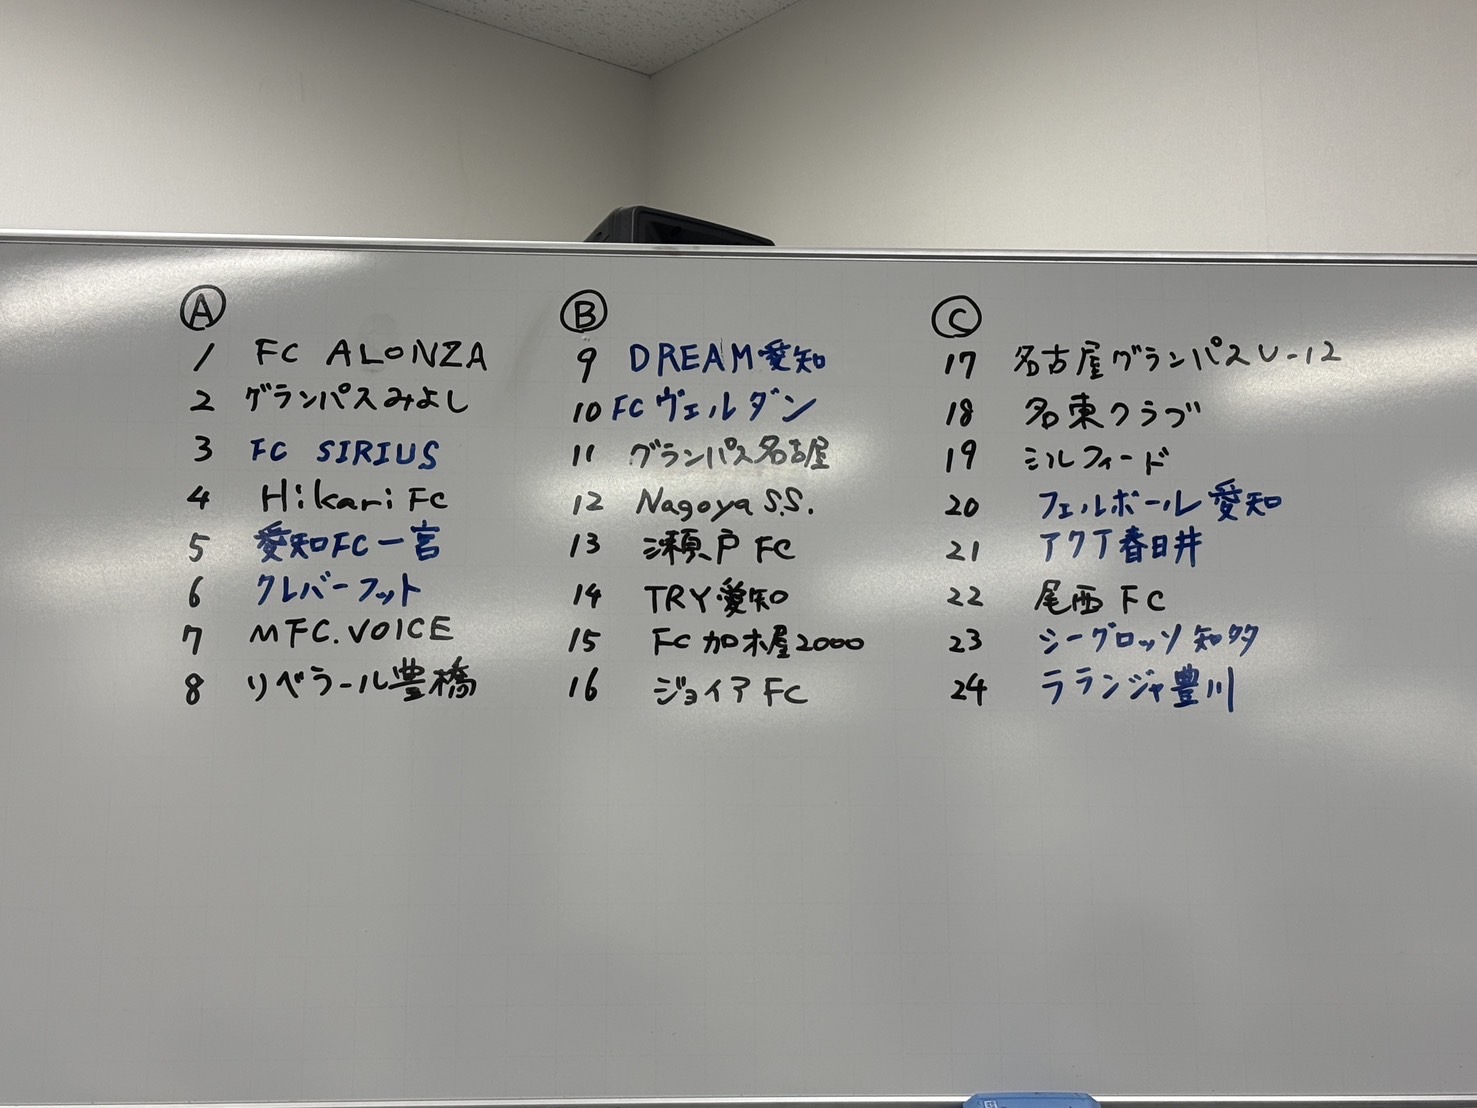 Ⓐ
1 FC ALONZA
2 グランパスみよし
3 FC SIRIUS
4 Hikari FC
5 愛知FC一宮
6 クレバーフット
7 MFC.VOICE
8 リベラール豊橋
Ⓑ
9 DREAM愛知
10 FCヴェルダン
11 グランパス名古屋
12 Nagoya S.S.
13 瀬戸FC
14 TRY愛知
15 FC加木屋2000
16 ジョイアFC
Ⓒ
17 名古屋グランパスU-12
18 名東クラブ
19 シルフィード
20 フェルボール愛知
21 アクア春日井
22 尾西FC
23 シーグロッソ知多
24 ラランジャ豊川